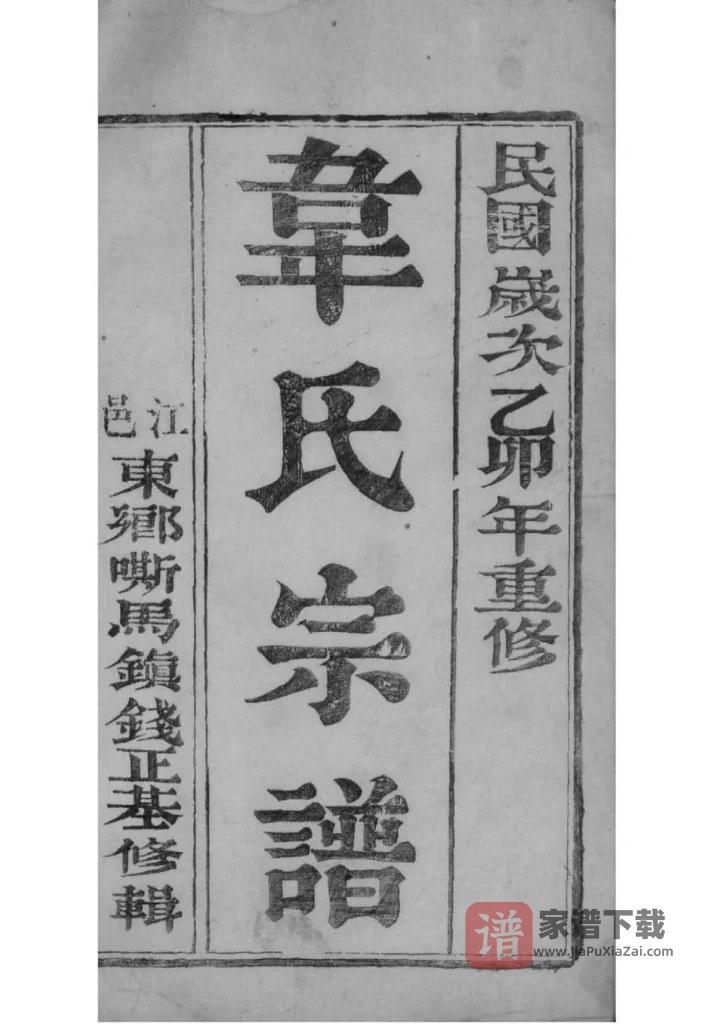 民國歲次乙卯年重修
韋氏宗譜
江邑
東鄉嘶馬鎮錢正基修輯
谱
家谱下载
www.JiaPuXiaZai.com